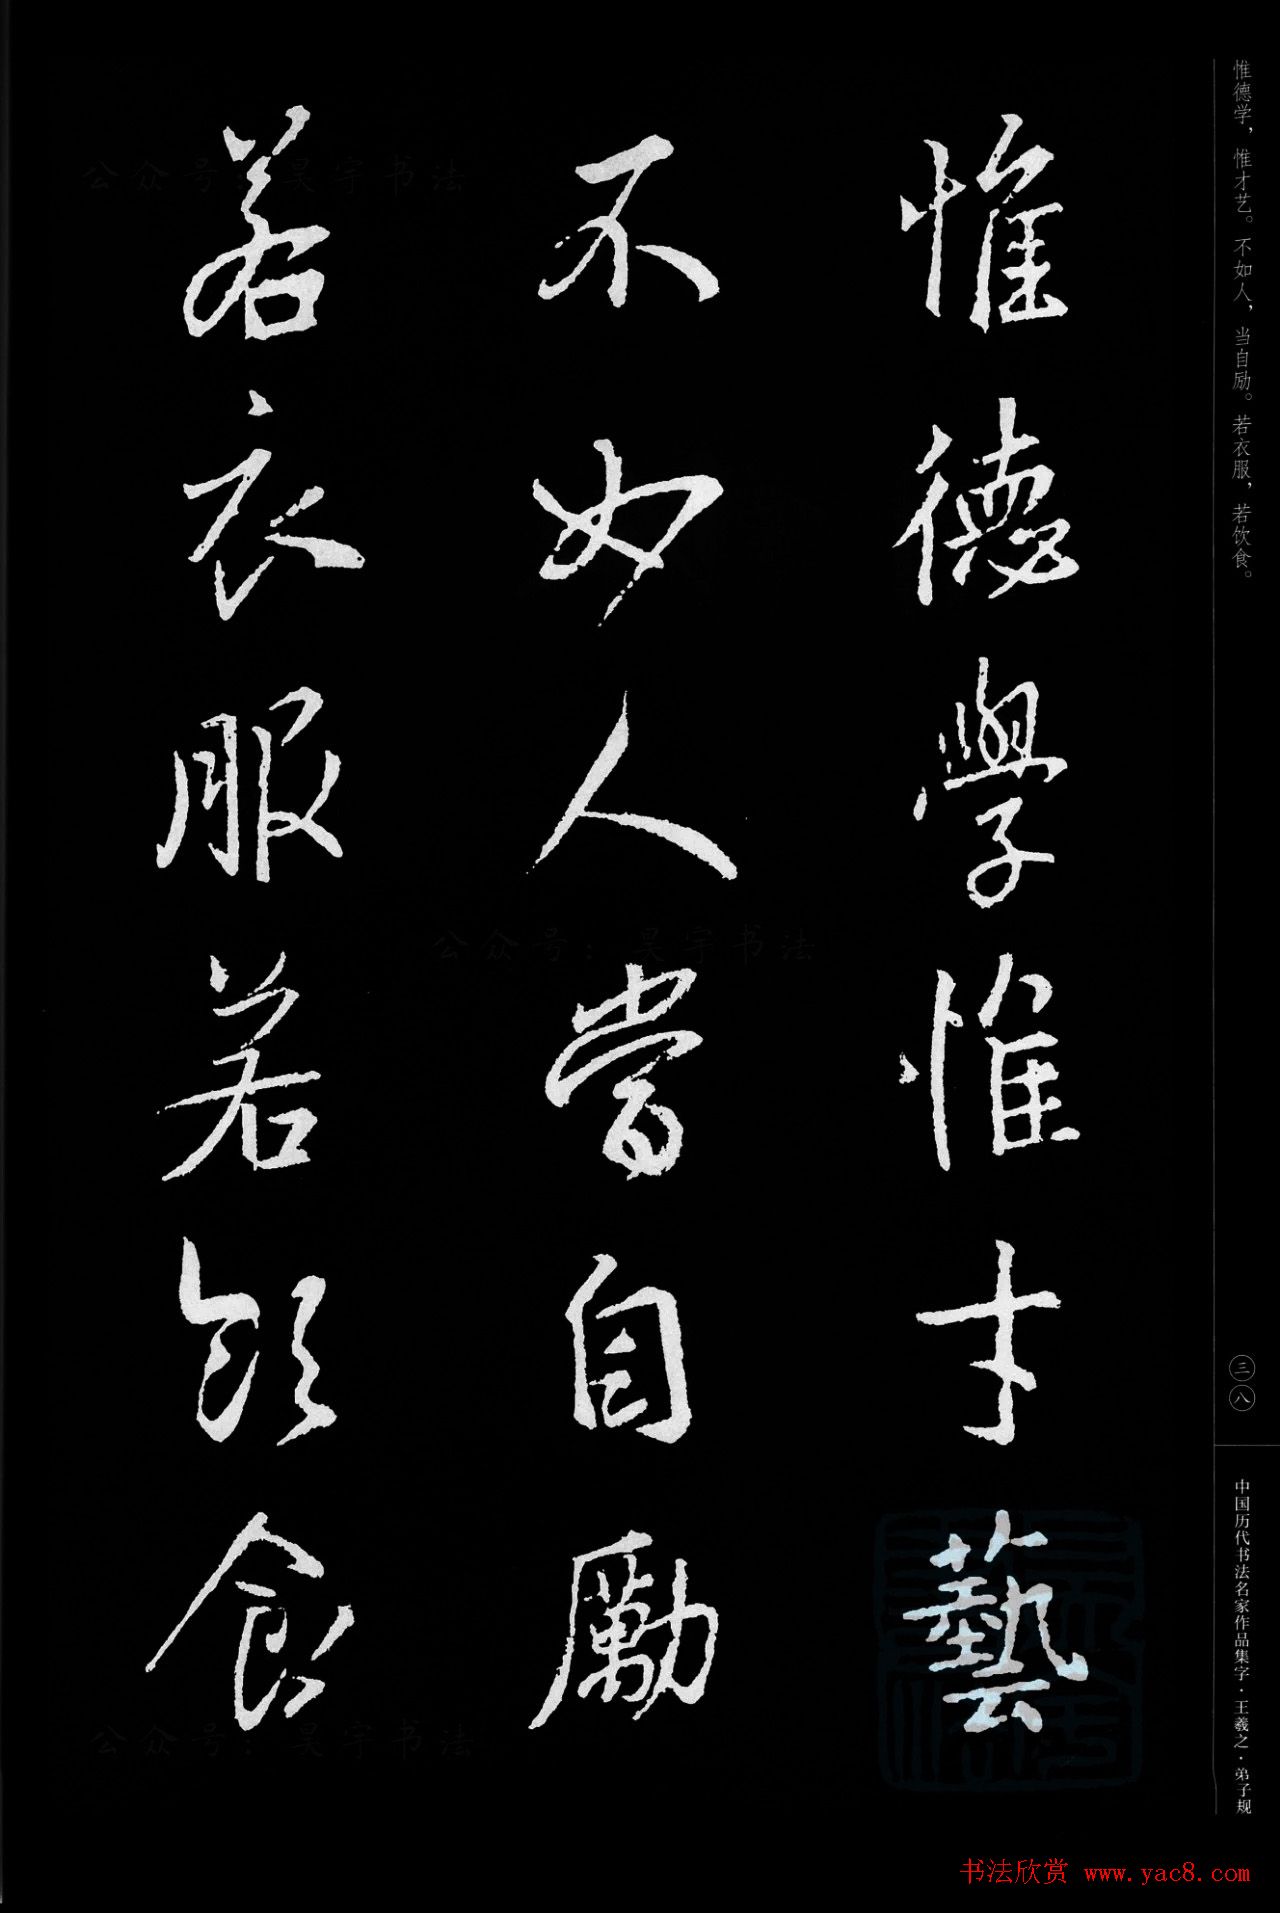 惟德学，惟才艺。不如人，当自励。若衣服，若饮食。
惟德學惟才藝
不如人當自勵
若衣服若飲食
三八
中国历代书法名家作品集字·王羲之·弟子规
公众号：昊宇书法
公众号：昊宇书法
公众号：昊宇书法
书法欣赏 www.yac8.com